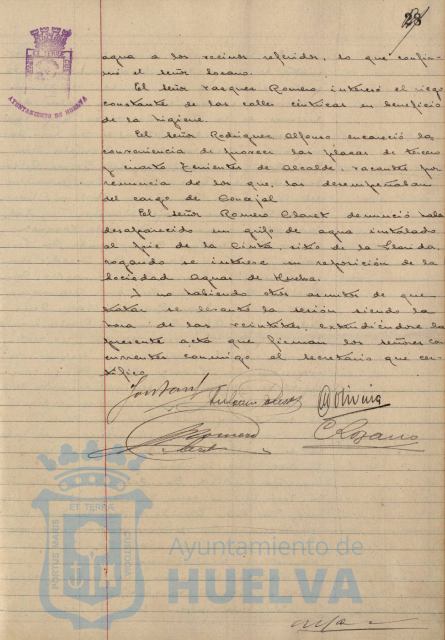 28
AYUNTAMIENTO DE HUELVA
agua a los vecinos referidos, lo que confir-
mó el señor Lozano.
El señor Vazquez Romero interesó el riego
constante de las calles céntricas en beneficio
de la higiene.
El señor Rodriguez Alfonso encareció la
conveniencia de proveer las plazas de tercero
y cuarto Tenientes de Alcalde, vacantes por
renuncia de los que las desempeñaban
del cargo de Concejal
El señor Romero Claret denunció haber
desaparecido un grifo de agua instalado
al pie de la Cinta, sitio de la
rogando se interese su reposición de la
Sociedad Aguas de Huelva.
Y no habiendo otros asuntos de que
tratar se levantó la sesión siendo la
hora de las veintitres, extendiéndose la
presente acta que firman los señores con
currentes conmigo el Secretario que cer-
tifico
Oliveira
Romero
C Lozano
PORTUS MARIS ET TERRAE CUSTODIA
Ayuntamiento de
HUELVA